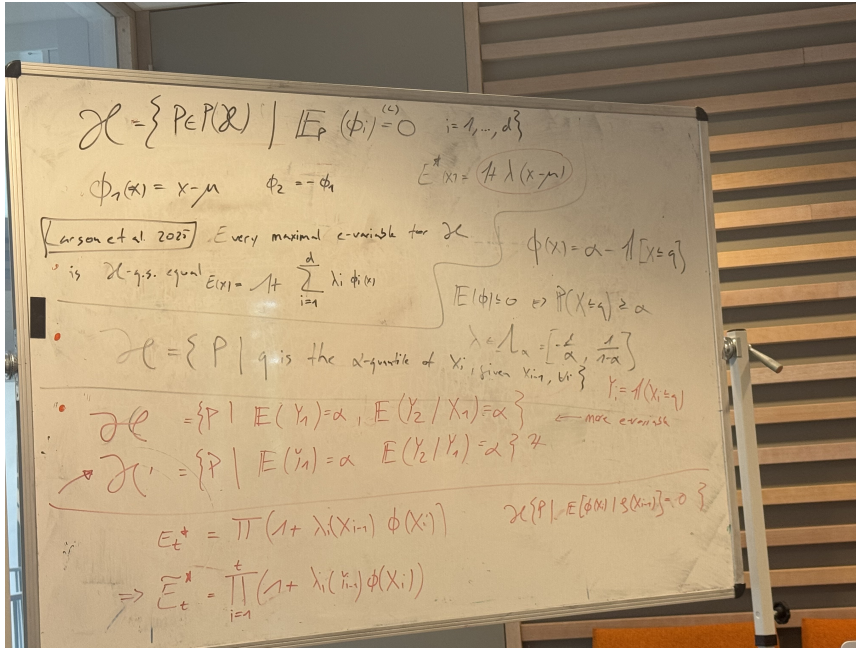 ℋ = { P∈P(𝒳) | 𝔼_P (ϕ_i) ^(≤)= 0 i = 1, ..., d }
ϕ_1(x) = x-μ ϕ_2 = -ϕ_1 E*(x) = (1 + λ(x-μ))
Larson et al. 2025 Every maximal e-variable for ℋ
is ℋ-q.s. equal E(x) = 1 + ∑_{i=1}^{d} λ_i ϕ_i(x)
ϕ(X) = α - 𝟙[X≤q]
𝔼[ϕ]≤0 ⇔ ℙ(X≤q) ≥ α
ℋ = { P | q is the α-quantile of X_i, given X_{i-1}, ∀i }
λ ∈ Λ_α = [-1/α, 1/(1-α)]
Y_i = 𝟙(X_i≤q)
ℋ = { P | 𝔼(Y_1) = α, 𝔼(Y_2 | X_1) = α } ← more e-variable
ℋ' = { P | 𝔼(Y_1) = α 𝔼(Y_2 | Y_1) = α }
ℋ { P | 𝔼[ϕ(X_i) | g(X_{i-1})] = 0 }
if E_t* = ∏ (1 + λ_i(X_{i-1}) ϕ(X_i))
⇒ Ẽ_t* = ∏_{i=1}^{t} (1 + λ_i(Y_{i-1}) ϕ(X_i))